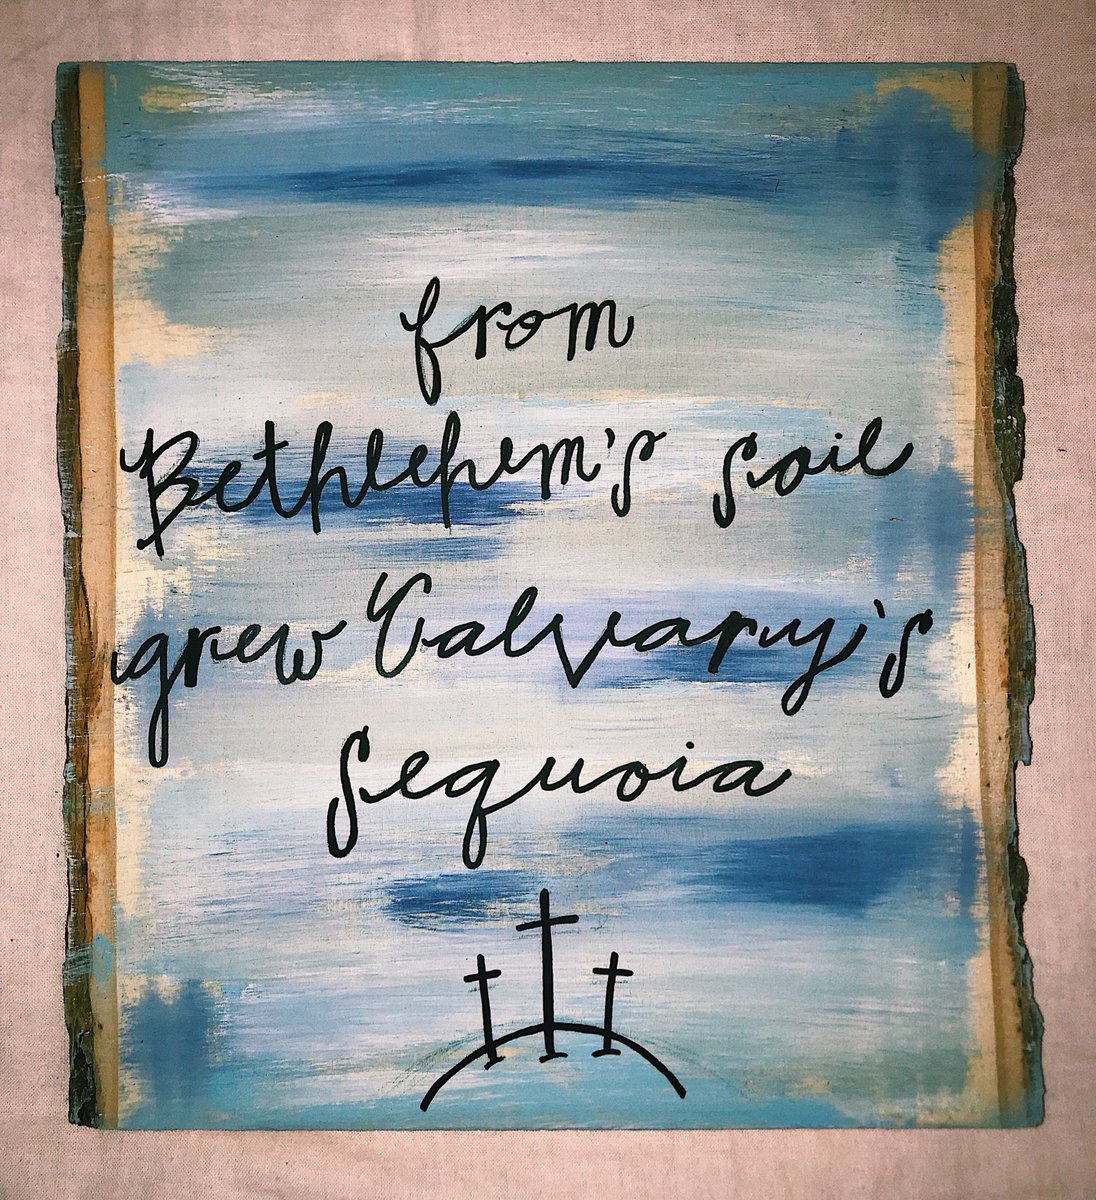 from
Bethlehem's soil
grew Calvary's
Sequoia